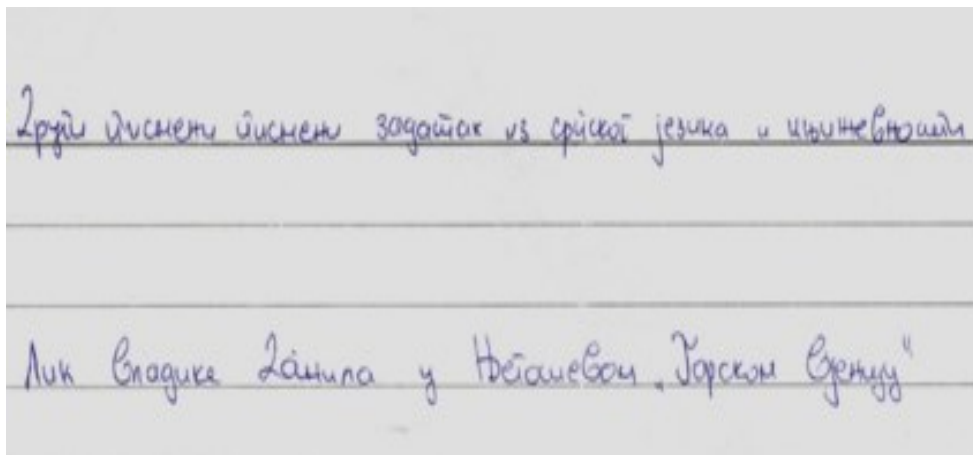 Други писмени писмени задатак из српског језика и књижевности
Лик владике Данила у Његошевом „Горском вјенцу“